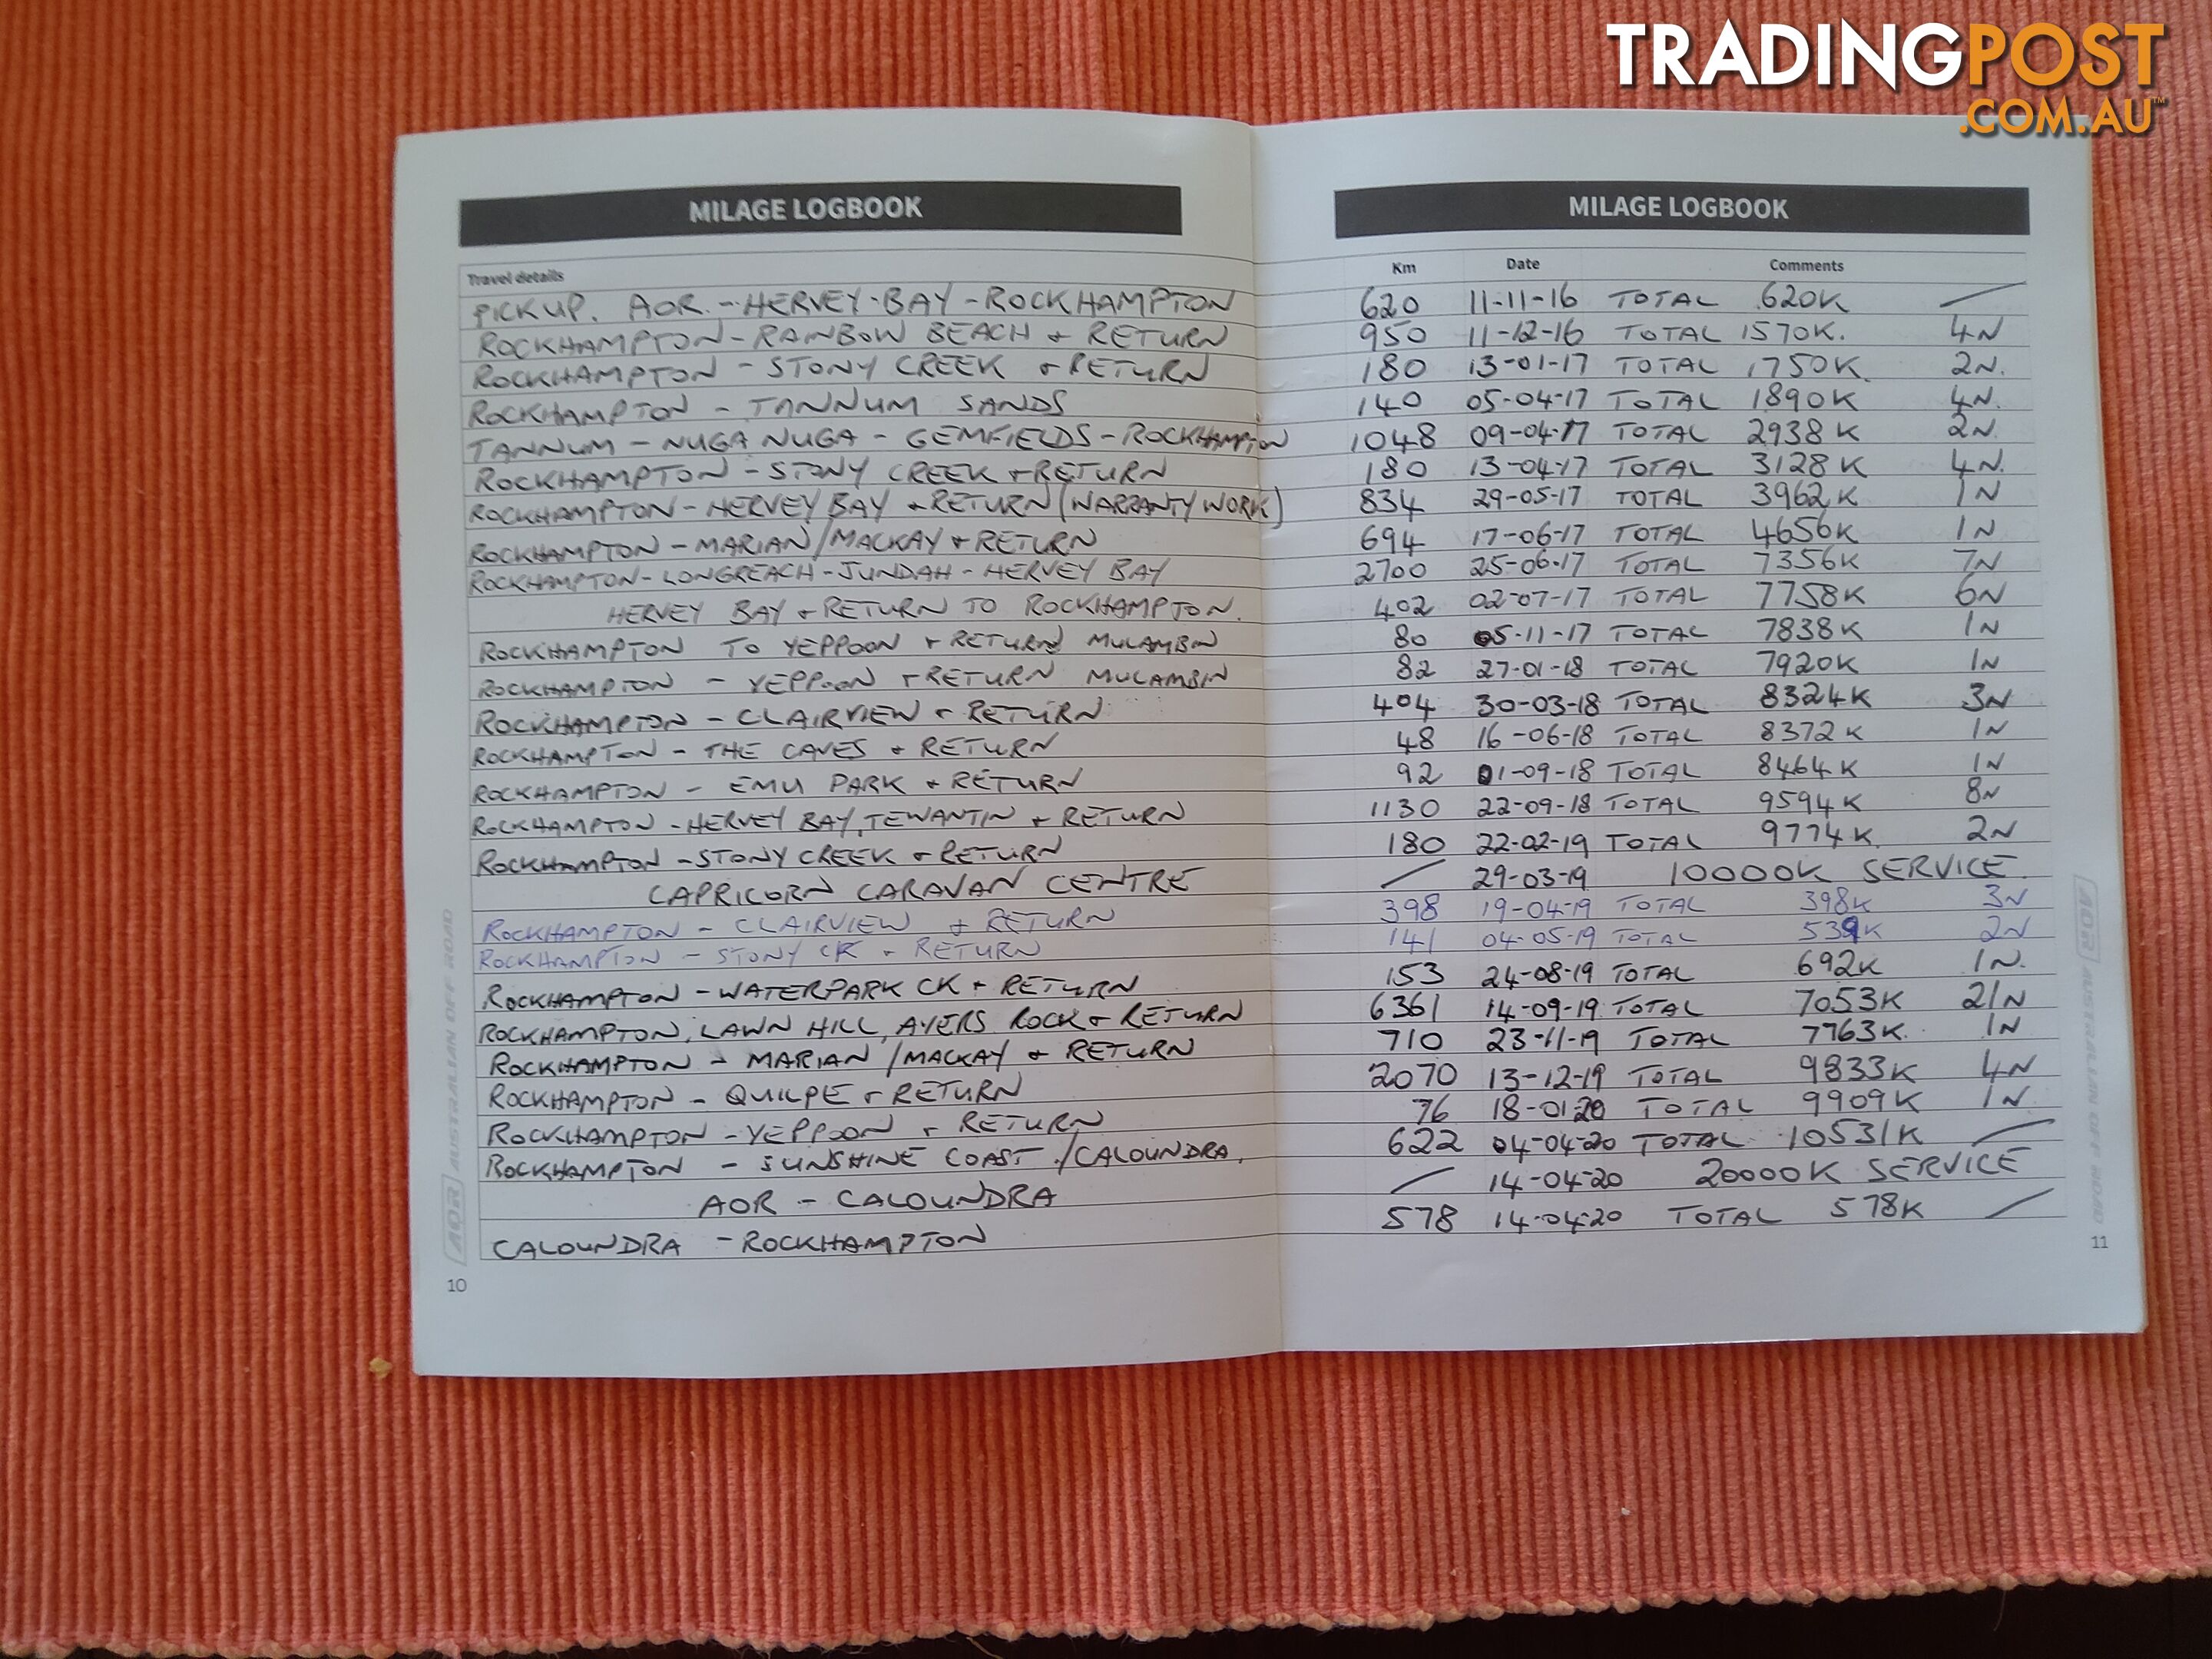 TRADINGPOST
.COM.AU™
MILAGE LOGBOOK MILAGE LOGBOOK
Travel details Km Date Comments
PICKUP. AOR. - HERVEY-BAY-ROCKHAMPTON 620 11-11-16 TOTAL 620K —
ROCKHAMPTON-RAINBOW BEACH + RETURN 950 11-12-16 TOTAL 1570K. 4N
ROCKHAMPTON - STONY CREEK + RETURN 180 13-01-17 TOTAL 1750K. 2N.
ROCKHAMPTON - TANNUM SANDS 140 05-04-17 TOTAL 1890K 4N.
TANNUM - NUGA NUGA - GEMFIELDS-ROCKHAMPTON 1048 09-04-17 TOTAL 2938K 2N
ROCKHAMPTON - STONY CREEK + RETURN 180 13-04-17 TOTAL 3128K 4N.
ROCKHAMPTON-HERVEY BAY + RETURN (WARRANTY WORK) 834 29-05-17 TOTAL 3962K 1N
ROCKHAMPTON-MARIAN/MACKAY + RETURN 694 17-06-17 TOTAL 4656K 1N
ROCKHAMPTON-LONGREACH-JUNDAH-HERVEY BAY 2700 25-06-17 TOTAL 7356K 7N
HERVEY BAY + RETURN TO ROCKHAMPTON. 402 02-07-17 TOTAL 7758K 6N
ROCKHAMPTON TO YEPPOON + RETURN MULAMBIN 80 05-11-17 TOTAL 7838K 1N
ROCKHAMPTON - YEPPOON + RETURN MULAMBIN 82 27-01-18 TOTAL 7920K 1N
ROCKHAMPTON - CLAIRVIEW + RETURN 404 30-03-18 TOTAL 8324K 3N
ROCKHAMPTON - THE CAVES + RETURN 48 16-06-18 TOTAL 8372K 1N
ROCKHAMPTON - EMU PARK + RETURN 92 01-09-18 TOTAL 8464K 1N
ROCKHAMPTON-HERVEY BAY, TEWANTIN + RETURN 1130 22-09-18 TOTAL 9594K 8N
ROCKHAMPTON-STONY CREEK + RETURN 180 22-02-19 TOTAL 9774K. 2N
CAPRICORN CARAVAN CENTRE — 29-03-19 10000K SERVICE.
ROCKHAMPTON - CLAIRVIEW + RETURN 398 19-04-19 TOTAL 398K 3N
ROCKHAMPTON - STONY CK + RETURN 141 04-05-19 TOTAL 539K 2N
ROCKHAMPTON-WATERPARK CK + RETURN 153 24-08-19 TOTAL 692K 1N.
ROCKHAMPTON, LAWN HILL, AYERS ROCK + RETURN 6361 14-09-19 TOTAL 7053K 21N
ROCKHAMPTON - MARIAN/MACKAY + RETURN 710 23-11-19 TOTAL 7763K. 1N
ROCKHAMPTON - QUILPE + RETURN 2070 13-12-19 TOTAL 9833K 4N
ROCKHAMPTON-YEPPOON + RETURN 76 18-01-20 TOTAL 9909K 1N
ROCKHAMPTON - SUNSHINE COAST./CALOUNDRA. 622 04-04-20 TOTAL 10531K —
AOR - CALOUNDRA — 14-04-20 20000K SERVICE
CALOUNDRA - ROCKHAMPTON 578 14-04-20 TOTAL 578K —
AOR AUSTRALIAN OFF ROAD
AOR AUSTRALIAN OFF ROAD
10 11